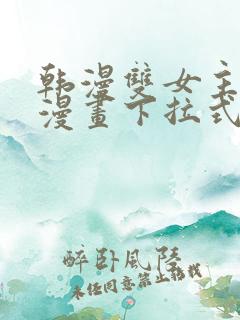 韩漫雙女主
漫畫下拉式
醉卧風陵
未经同意禁止转载